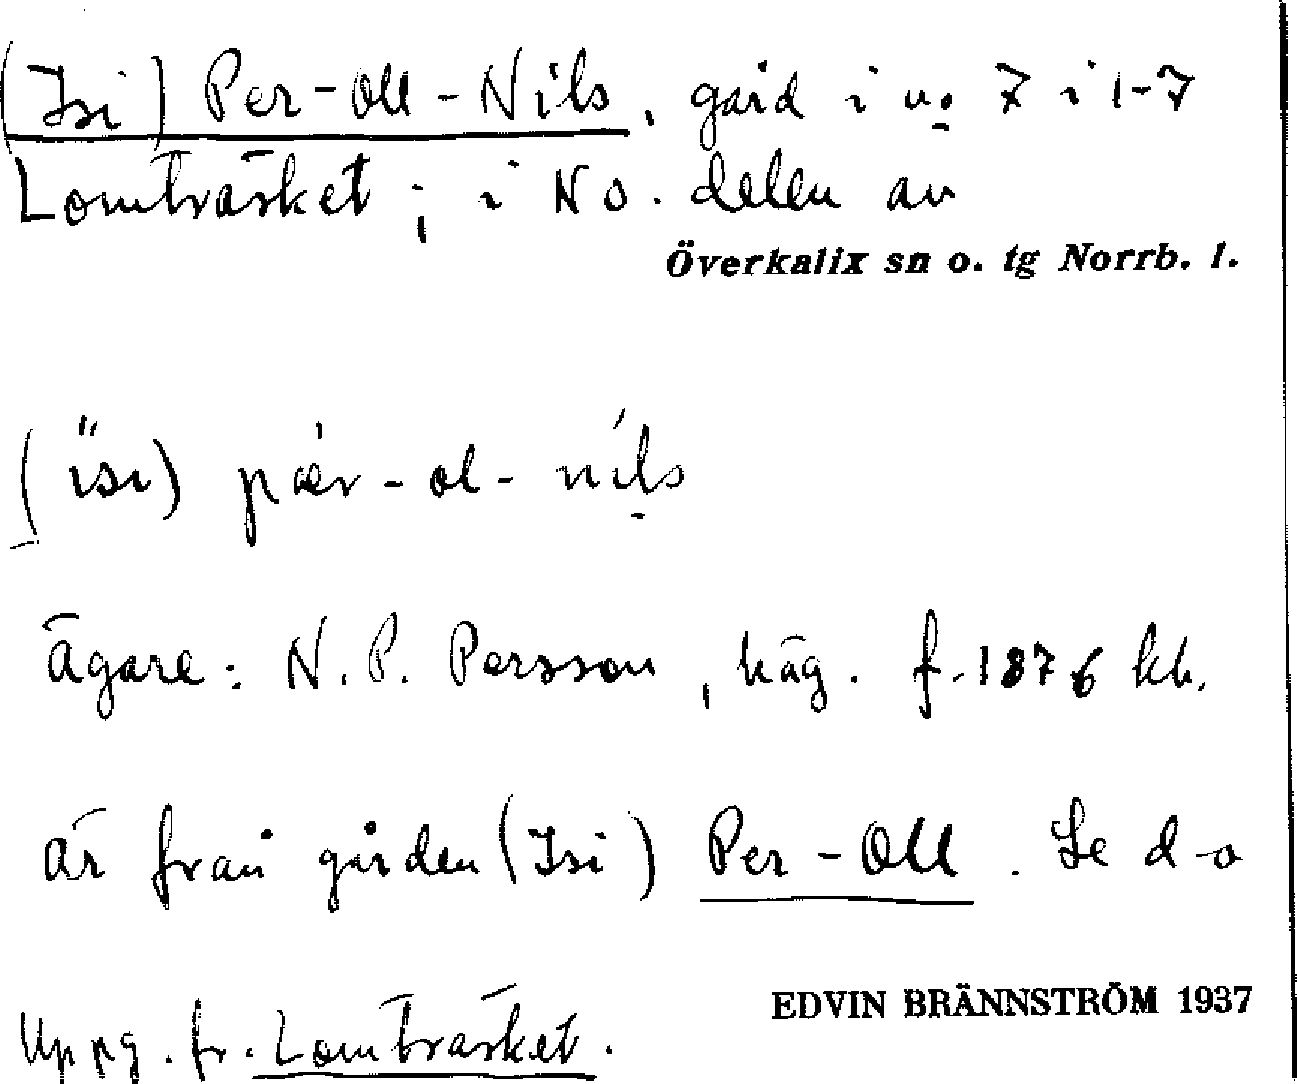 (Isi) Per-Oll-Nils, gård i no 7 i 1-7
Lomträsket; i NO. delen av
Överkalix sn o. tg Norrb. l.
(ïsı) pær-ol-nils
Ägare: N. P. Persson, häg. f. 1876 kh.
är från gården (Isi) Per-Oll. Se d-o
EDVIN BRÄNNSTRÖM 1937
Uppg. fr. Lomträsket.